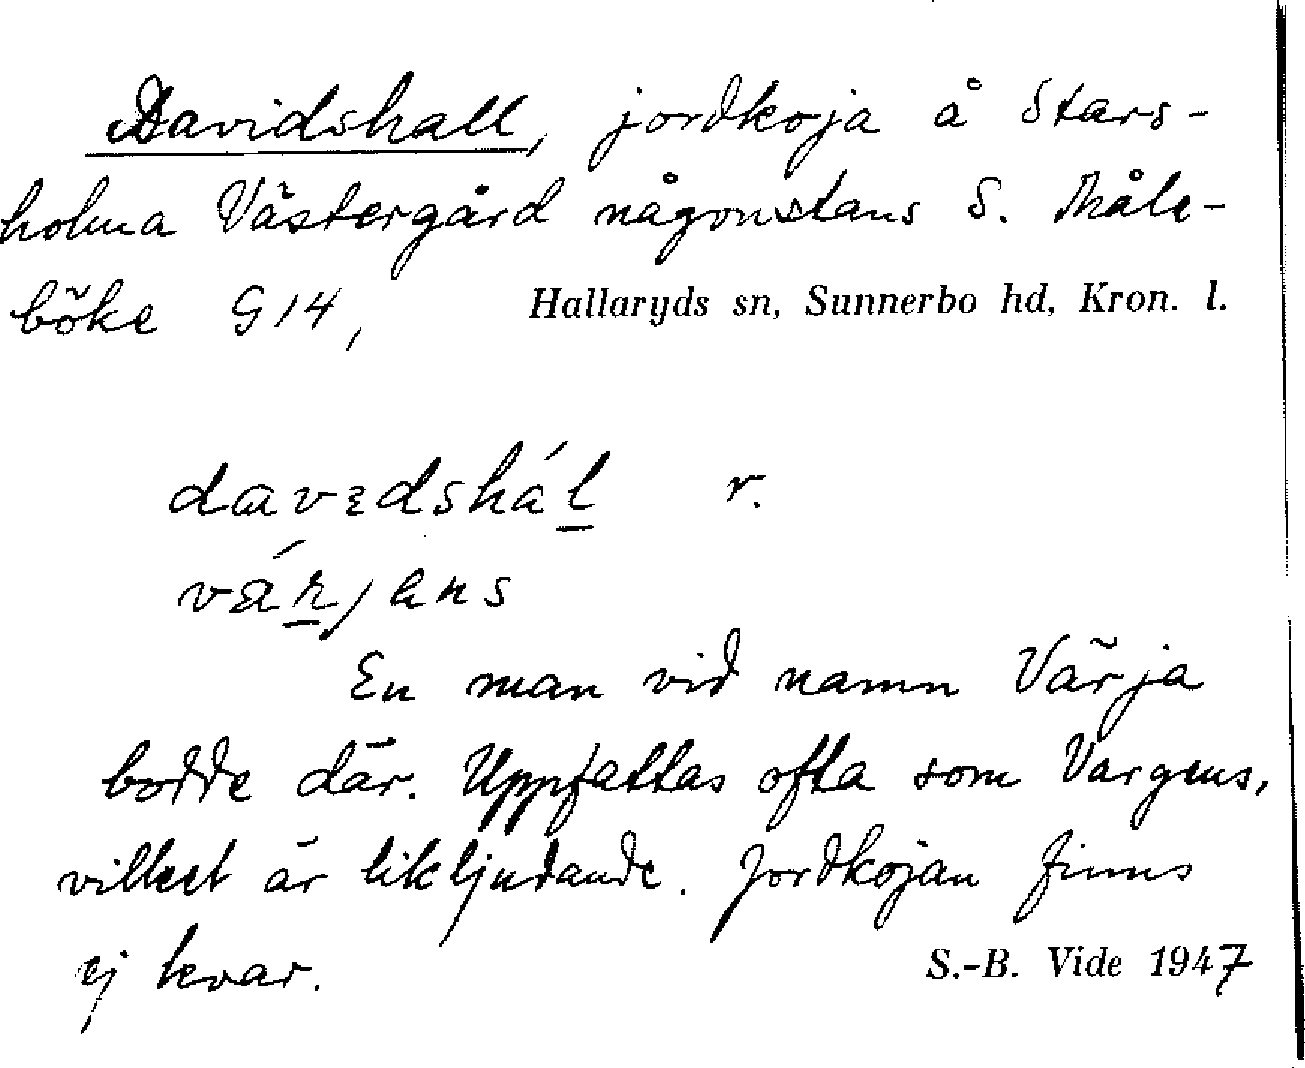 Davidshall, jordkoja å Stars-
holma Västergård någonstans S. Måle-
böke G14, Hallaryds sn, Sunnerbo hd, Kron. l.
davedshál r.
várjans
En man vid namn Värja
bodde där. Uppfattas ofta som Vargens,
vilket är likljudande. Jordkojan finns
ej kvar. S.-B. Vide 1947